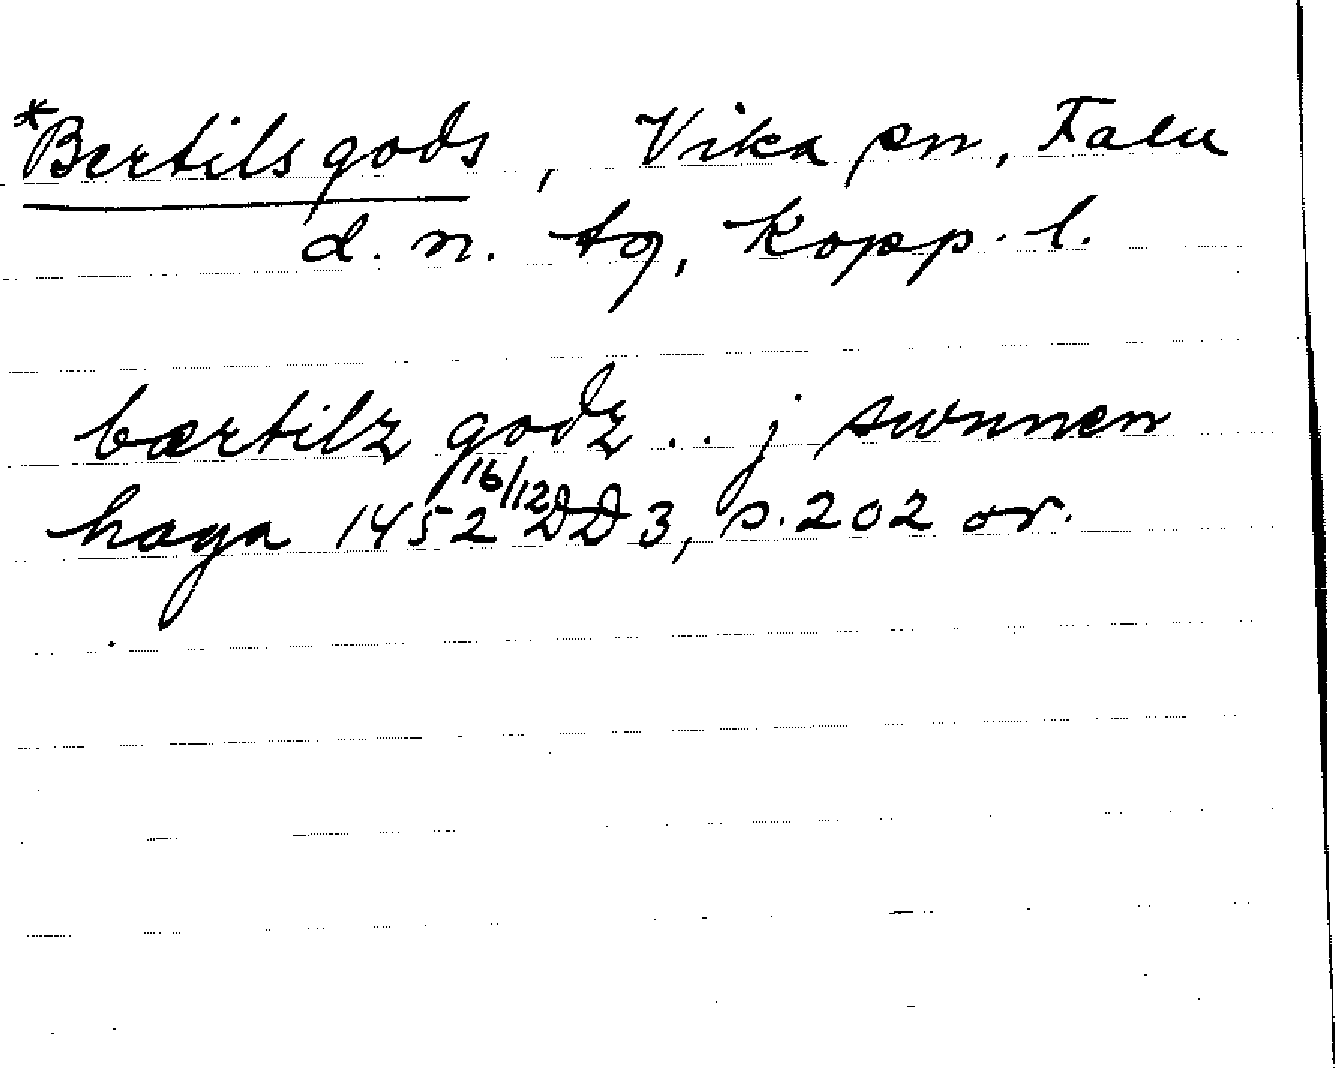 *Bertilsgods, Vika sn, Falu
d. n. tg, Kopp. l.
bærtilz godz .. j swnnan
haga 1452 16/12 DD 3, s. 202 or.